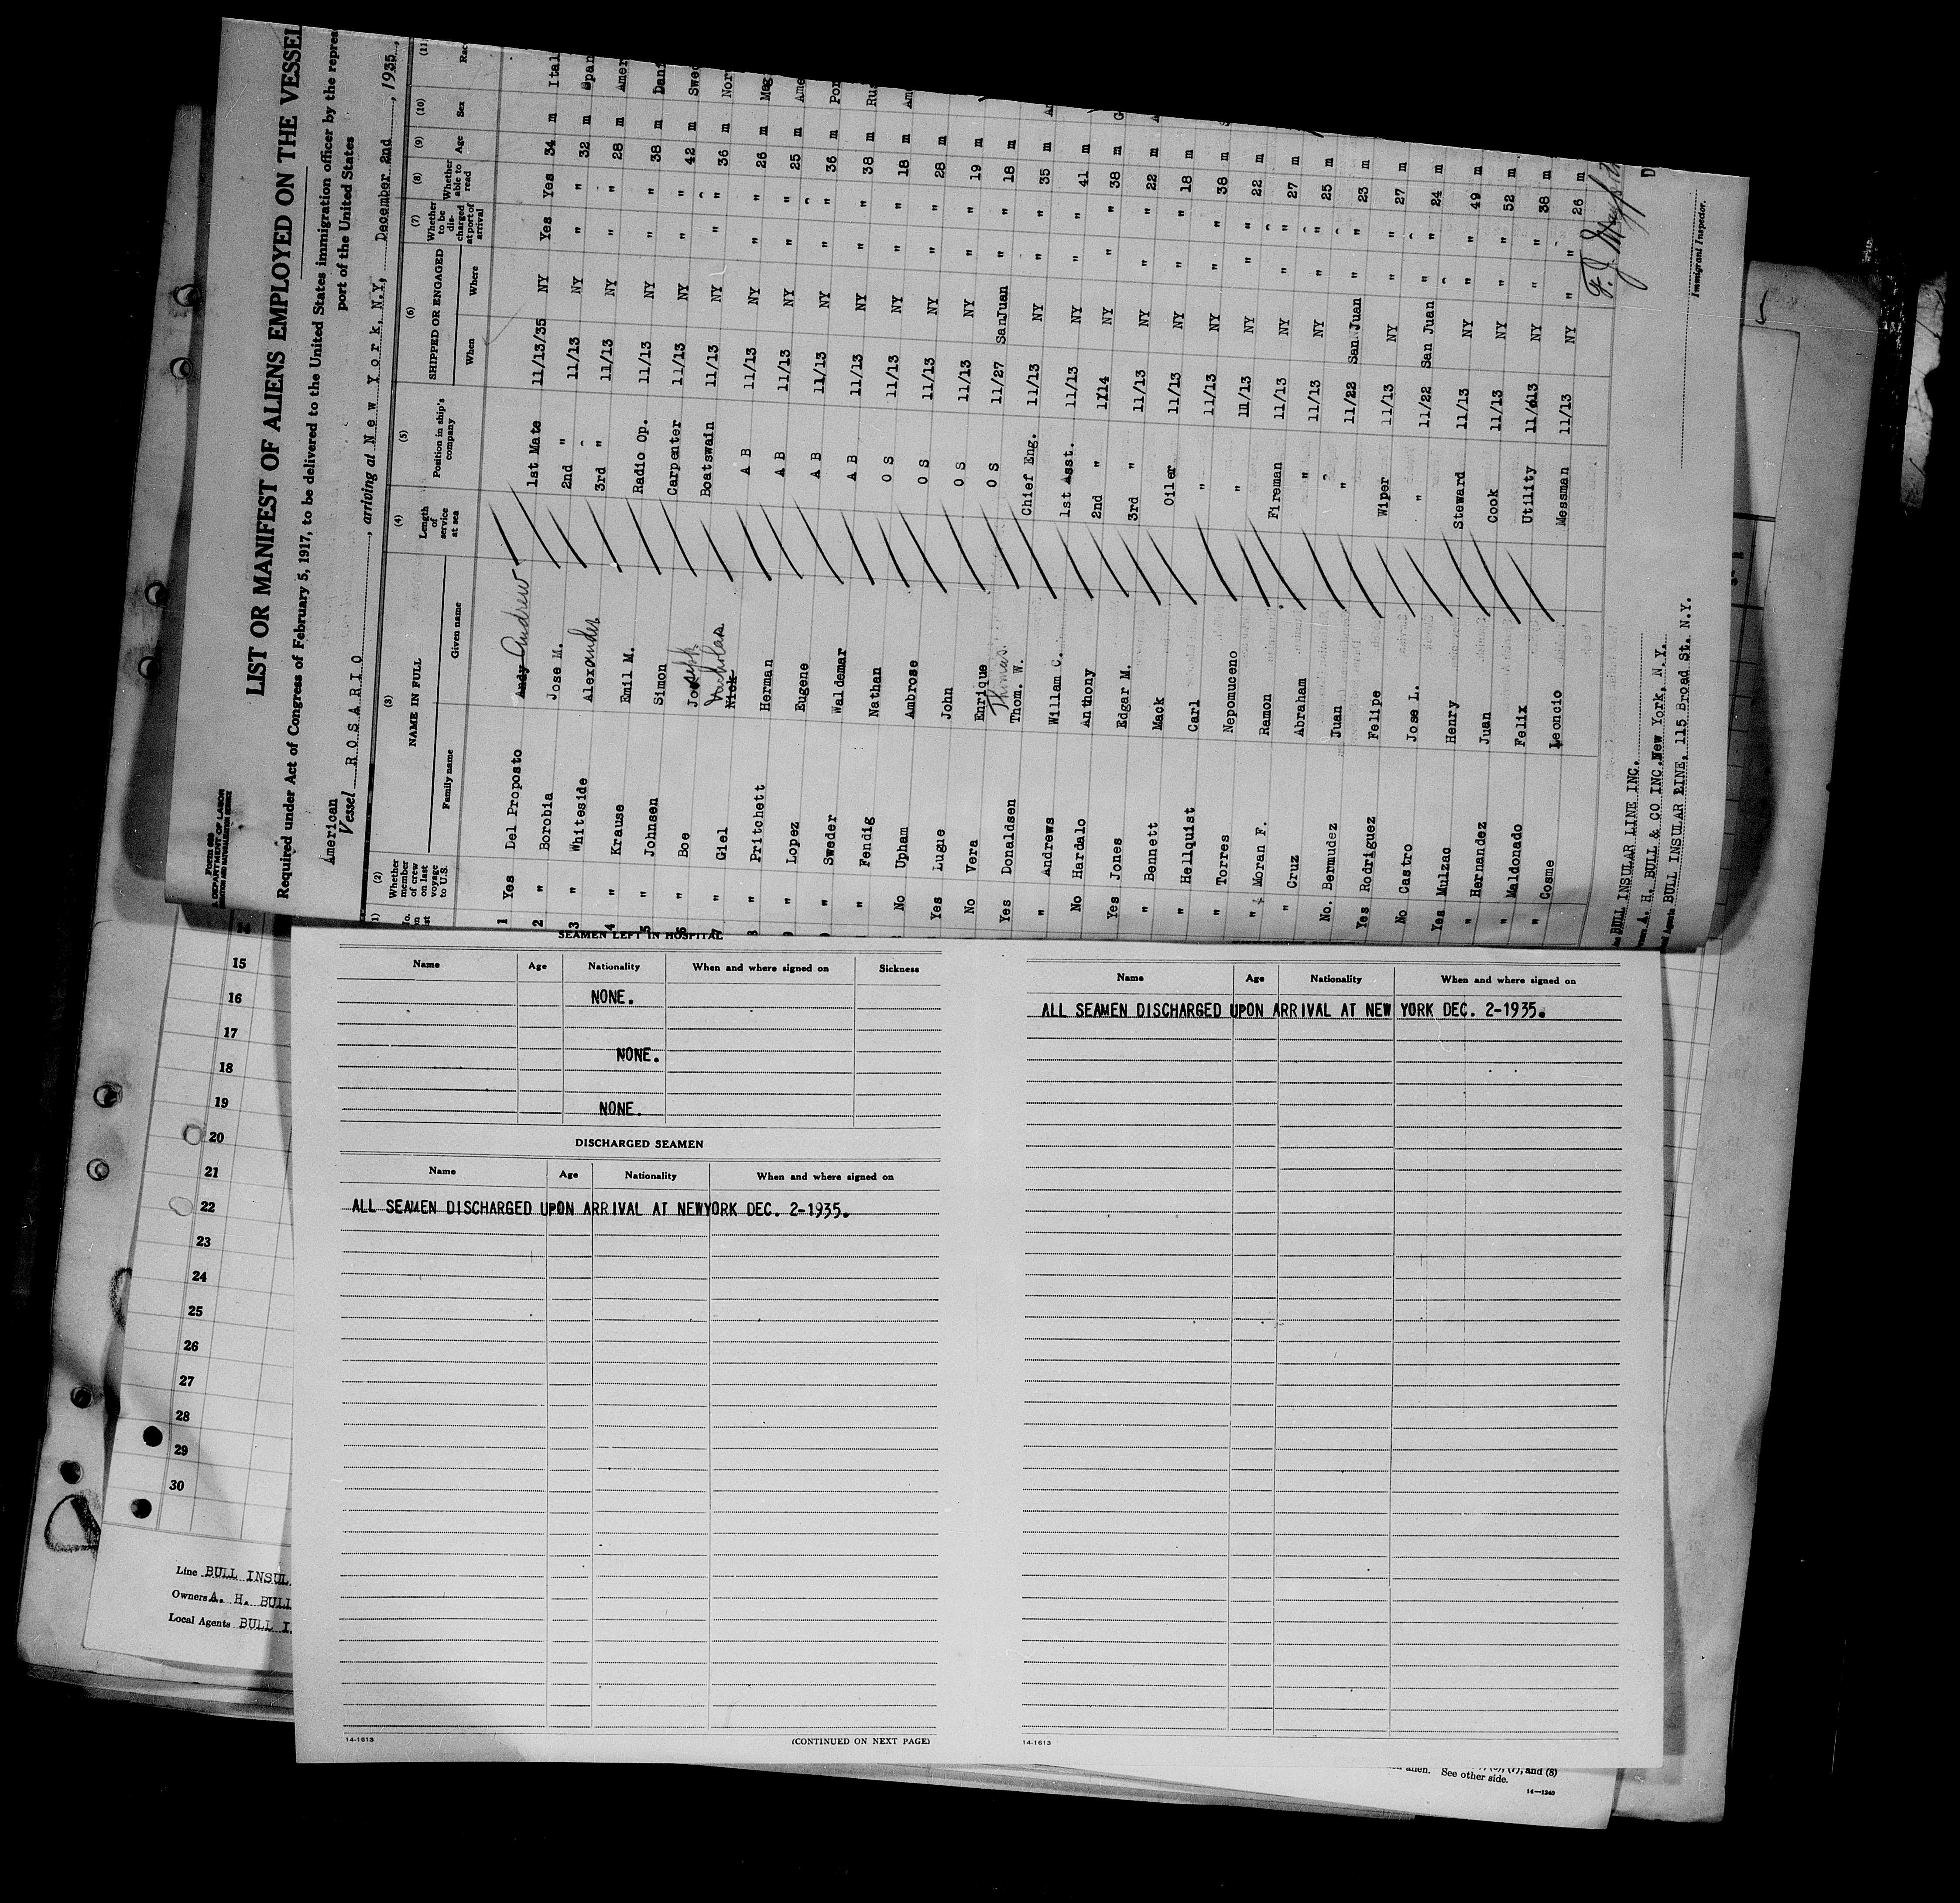 Form 689
U.S. DEPARTMENT OF LABOR
LIST OR MANIFEST OF ALIENS EMPLOYED ON THE VESSEL
Required under Act of Congress of February 5, 1917, to be delivered to the United States immigration officer by the repres
port of the United States
American
Vessel ROSARIO, arriving at New York, N.Y, December 2nd, 1935,
(2) (3) (4) (5) (6) (7) (8) (9) (10) (11)
Whether member of crew on last voyage to U.S. NAME IN FULL Length of service at sea Position in ship's company SHIPPED OR ENGAGED Whether to be discharged at port of arrival Whether able to read Age Sex Rac
Family name Given name When Where
1 Yes Del Proposto Andy Andrew 1st Mate 11/13/35 NY Yes Yes 34 m Ital
2 " Borobia Jose M. 2nd " 11/13 NY " " 32 m Span
3 " Whiteside Alexander 3rd " 11/13 NY " " 28 m Amer
4 " Krause Emil M. Radio Op. 11/13 NY " " 38 m Dani
5 " Johnsen Simon Carpenter 11/13 NY " " 42 m Swed
6 " Boe Joseph Boatswain 11/13 NY " " 36 m Nor
7 " Giel Nick Nicholas A B 11/13 NY " " 26 m Mag
" Pritchett Herman A B 11/13 NY " " 25 m Ame
" Lopez Eugene A B 11/13 NY " " 36 m Por
" Sweder Waldemar A B 11/13 NY " " 38 m Rus
" Fendig Nathan O S 11/13 NY " " 18 m Am
No Upham Ambrose O S 11/13 NY " " 28 m
Yes Lugue John O S 11/13 NY " " 19 m
No Vera Enrique O S 11/27 SanJuan " " 18 m
Yes Donaldsen Thomas. Thom. W. Chief Eng. 11/13 NY " " 35 m
" Andrews Willam C. 1st Asst. 11/13 NY " " 41 m
No Hardalo Anthony 2nd " 11/14 NY " " 38 m G
Yes Jones Edgar M. 3rd " 11/13 NY " " 22 m
" Bennett Mack Oiler 11/13 NY " " 18 m
" Hellquist Carl " 11/13 NY " " 38 m
" Torres Nepomuceno " 11/13 NY " " 22 m
" Moran F. Ramon Fireman 11/13 NY " " 27 m
" Cruz Abraham " 11/13 NY " " 25 m
No. Bermudez Juan " 11/22 San Juan " " 23 m
Yes Rodriguez Felipe Wiper 11/13 NY " " 27 m
No Castro Jose L. " 11/22 San Juan " " 24 m
Yes Mulzac Henry Steward 11/13 NY " " 49 m
" Hernandez Juan Cook 11/13 NY " " 52 m
" Maldonado Felix Utility 11/13 NY " " 38 m
" Cosme Leoncio Messman 11/13 NY " " 26 m
BULL INSULAR LINE INC.
A. H. BULL & CO INC. New York, N.Y.
Agents BULL INSULAR LINE, 115 Broad St. N.Y.
Immigrant Inspector.
SEAMEN LEFT IN HOSPITAL
Name Age Nationality When and where signed on Sickness
NONE.
NONE.
NONE.
DISCHARGED SEAMEN
Name Age Nationality When and where signed on
ALL SEAMEN DISCHARGED UPON ARRIVAL AT NEWYORK DEC. 2-1935.
14-1613
(CONTINUED ON NEXT PAGE)
Name Age Nationality When and where signed on
ALL SEAMEN DISCHARGED UPON ARRIVAL AT NEW YORK DEC. 2-1935.
14-1613
14
15
16
17
18
19
20
21
22
23
24
25
26
27
28
29
30
Line BULL INSUL
Owners A. H. BULL
Local Agents BULL I
alien. See other side.
, (7), and (8)
14-1240